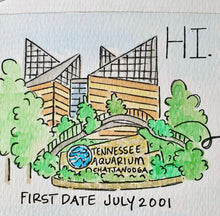 HI.
TENNESSEE
AQUARIUM
CHATTANOOGA
FIRST DATE JULY 2001